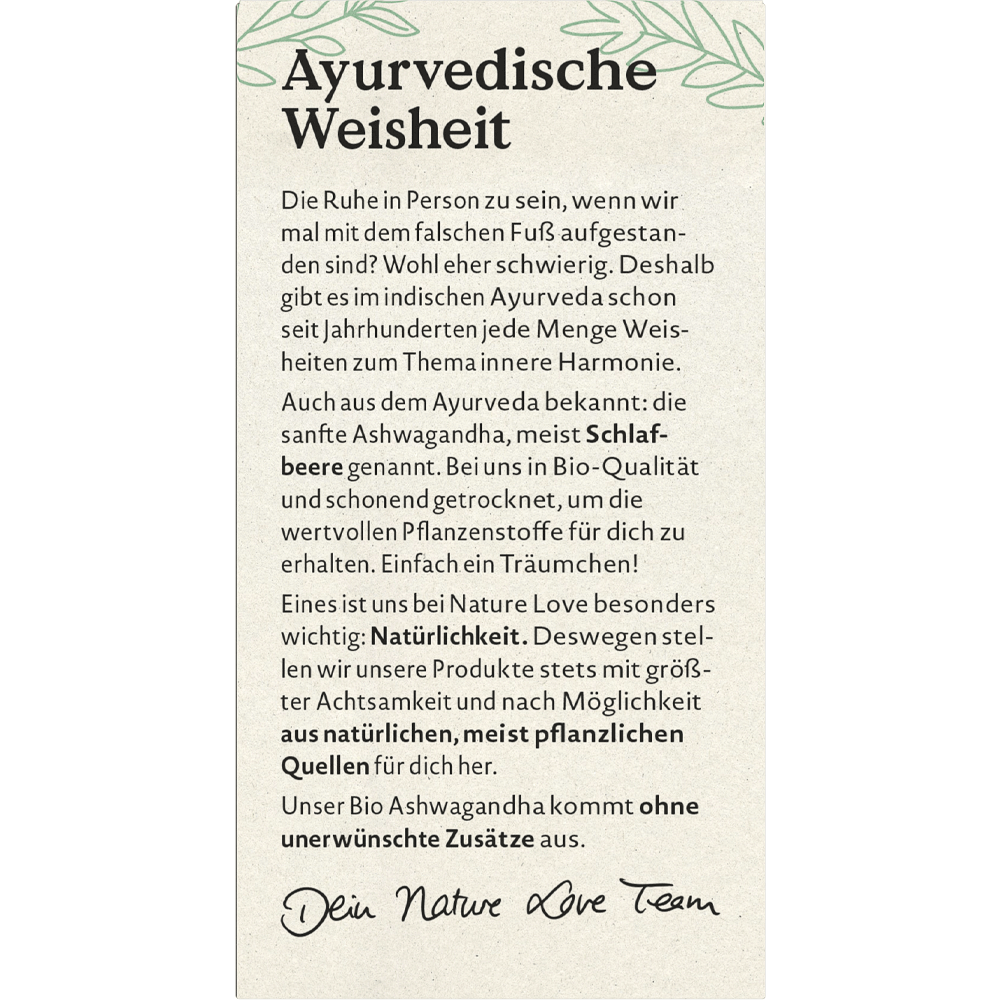 Ayurvedische
Weisheit
Die Ruhe in Person zu sein, wenn wir
mal mit dem falschen Fuß aufgestan-
den sind? Wohl eher schwierig. Deshalb
gibt es im indischen Ayurveda schon
seit Jahrhunderten jede Menge Weis-
heiten zum Thema innere Harmonie.
Auch aus dem Ayurveda bekannt: die
sanfte Ashwagandha, meist Schlaf-
beere genannt. Bei uns in Bio-Qualität
und schonend getrocknet, um die
wertvollen Pflanzenstoffe für dich zu
erhalten. Einfach ein Träumchen!
Eines ist uns bei Nature Love besonders
wichtig: Natürlichkeit. Deswegen stel-
len wir unsere Produkte stets mit größ-
ter Achtsamkeit und nach Möglichkeit
aus natürlichen, meist pflanzlichen
Quellen für dich her.
Unser Bio Ashwagandha kommt ohne
unerwünschte Zusätze aus.
Dein Nature Love Team